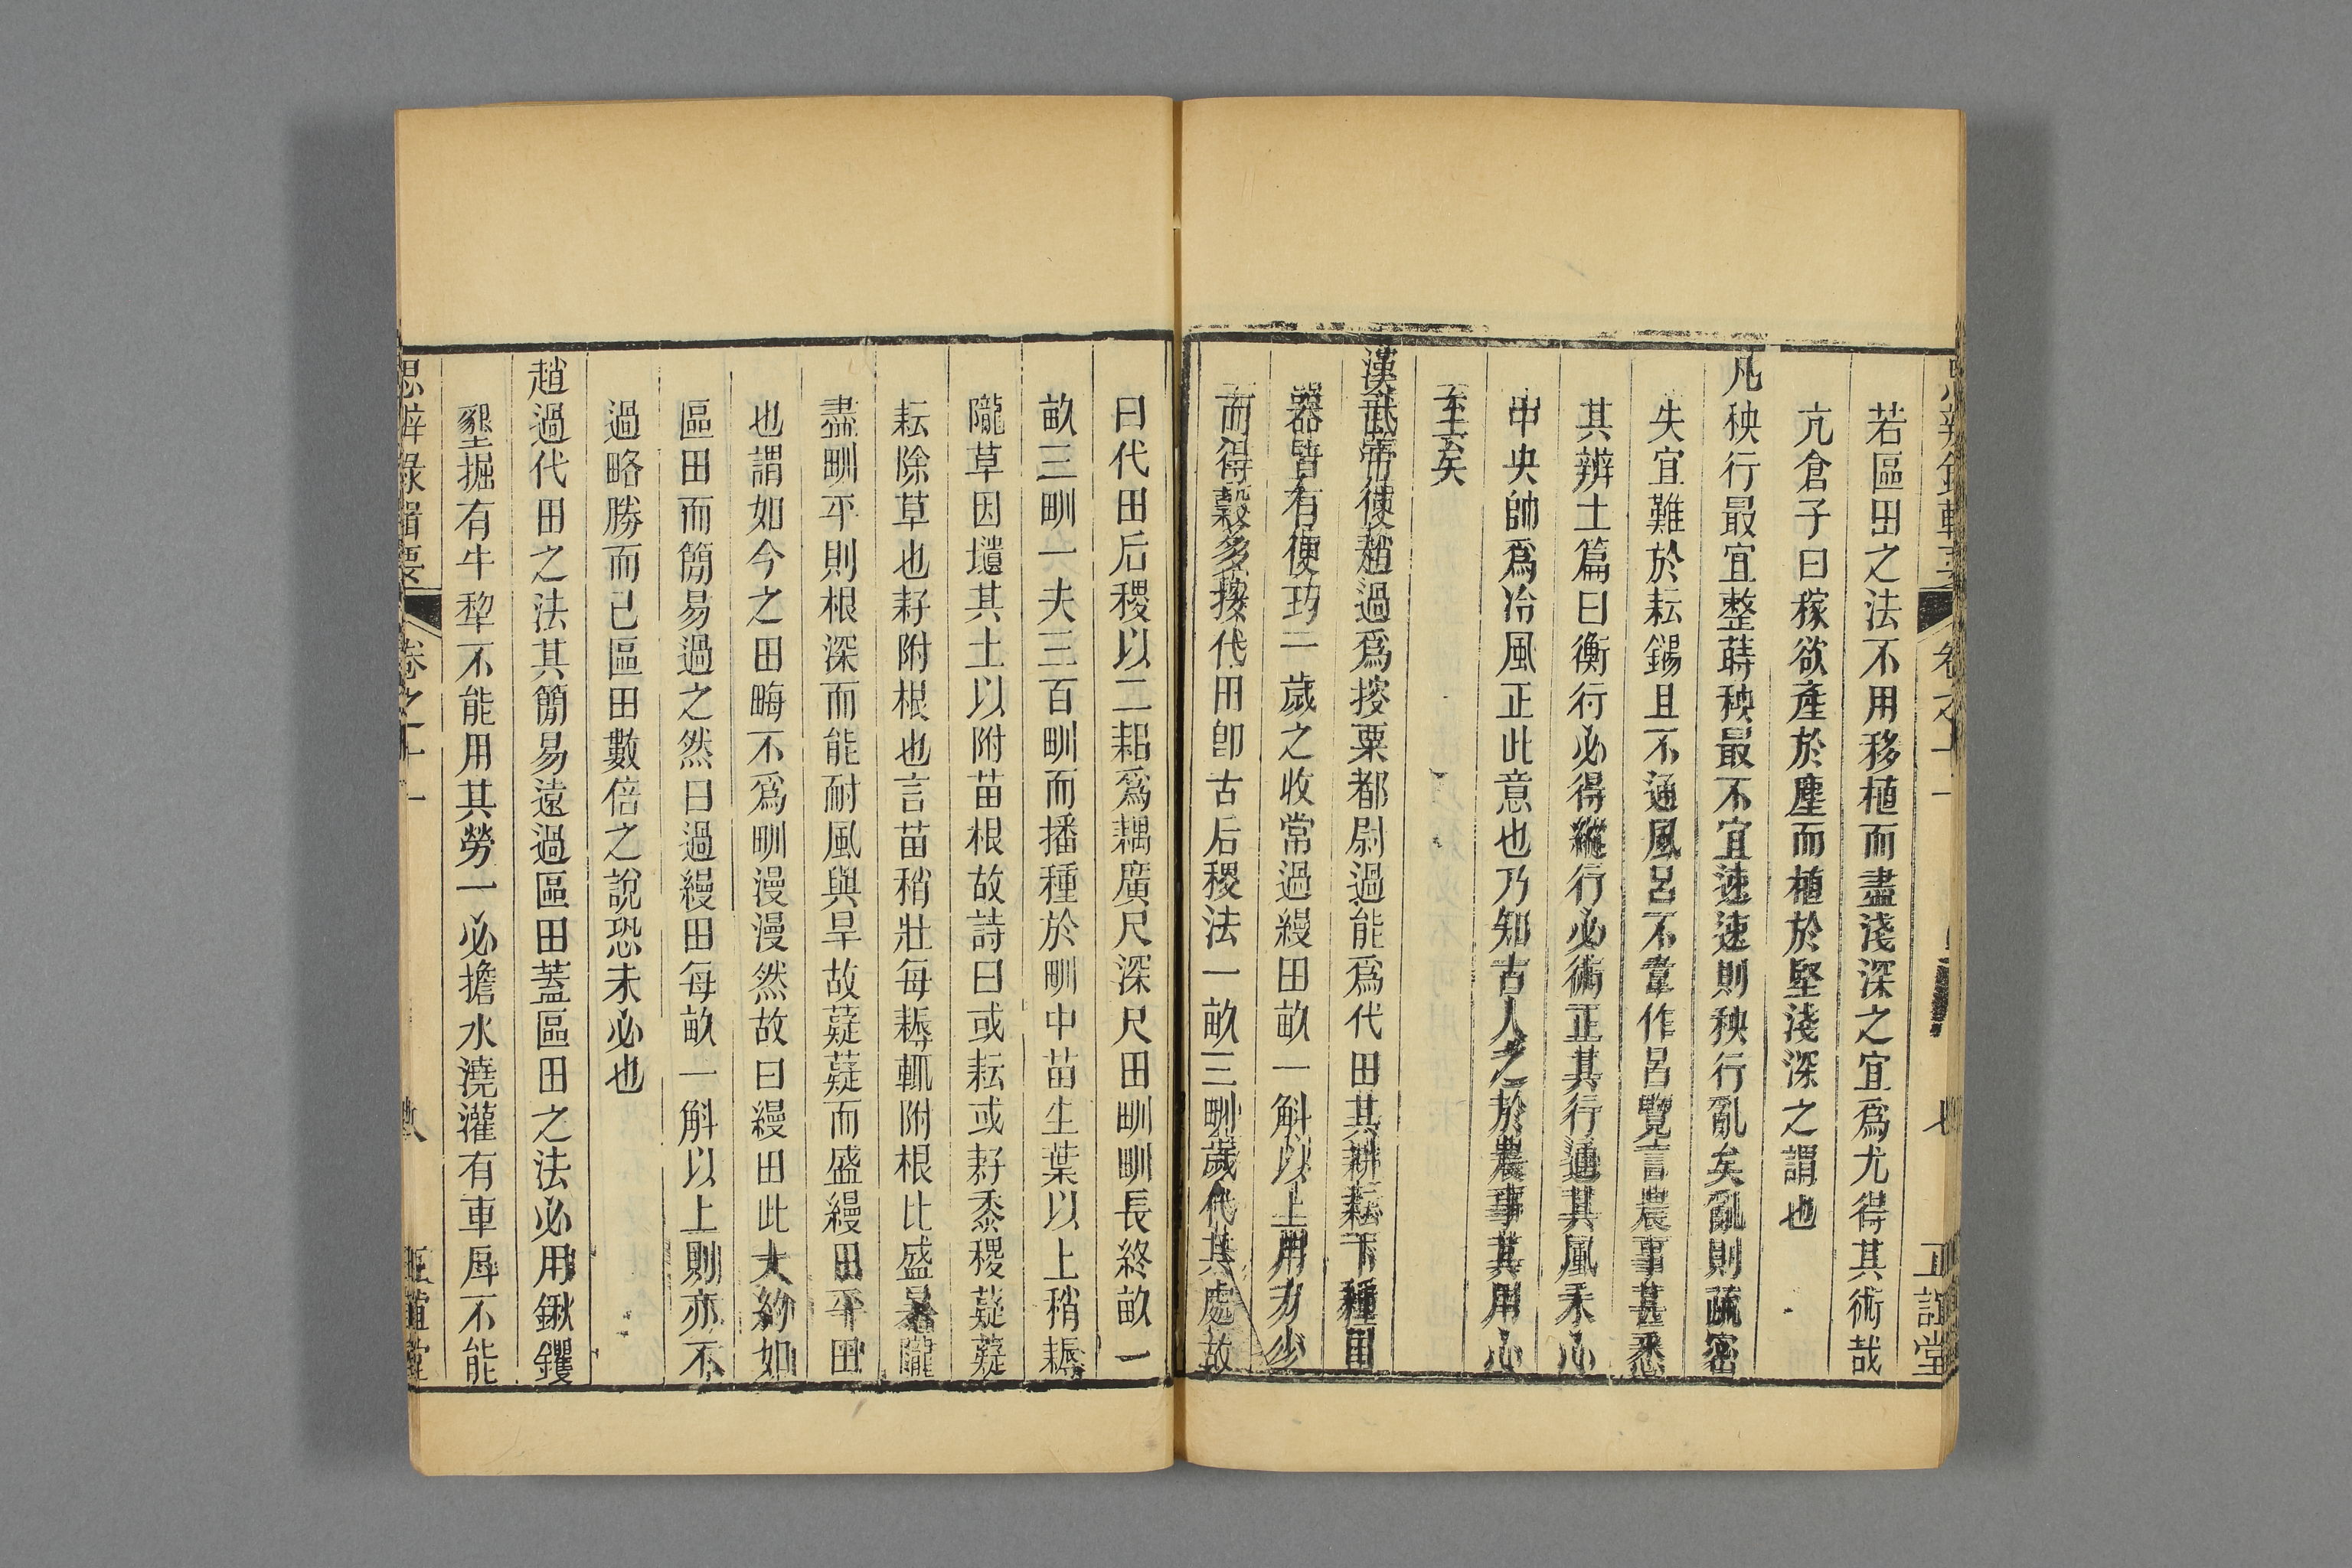 若區田之法不用移植而盡淺深之宜爲尤得其術哉
亢倉子曰稼欲產於塵而植於堅淺深之謂也
凡秧行最宜整蒔秧最不宜速速則秧行亂矣亂則疏密
失宜難於耘鍚且不通風呂不韋作呂覽言農事甚悉
其辨土篇曰衡行必得縱行必術正其行通其風夬心
中央帥爲冷風正此意也乃知古人之於農事其用心
至矣
漢武帝使趙過爲搜粟都尉過能爲代田其耕耘下種田
器皆有便巧一歲之收常過縵田畝一斛以上用力少
而得穀多按代田卽古后稷法一畝三甽歲代其處故
曰代田后稷以二耜爲耦廣尺深尺田甽甽長終畝一
畝三甽一夫三百甽而播種於甽中苗生葉以上稍耨
隴草因壝其土以附苗根故詩曰或耘或耔黍稷薿薿
耘除草也耔附根也言苗稍壯每耨輒附根比盛暑隴
盡甽平則根深而能耐風與旱故薿薿而盛縵田平田
也謂如今之田畮不爲甽漫漫然故曰縵田此大約如
區田而簡易過之然曰過縵田每畝一斛以上則亦不
過略勝而已區田數倍之說恐未必也
趙過代田之法其簡易遠過區田蓋區田之法必用鍬钁
墾掘有牛犂不能用其勞一必擔水澆灌有車戽不能
思辨錄輯要
卷之十一
正誼堂